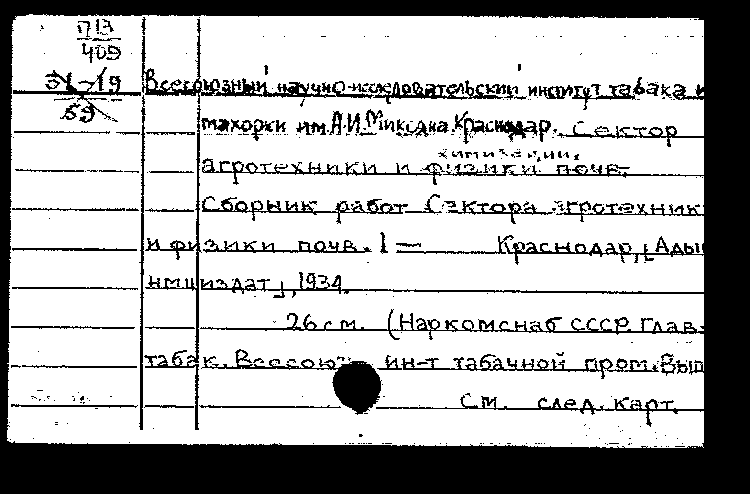 П13
409
31-19
59
Всесоюзный научно-исследовательский институт табака и
махорки им. А.И. Микояна. Краснодар. Сектор
химизации.
агротехники и физики почв.
Сборник работ Сектора агротехник
и физики почв. 1 — Краснодар, [Адыг
нациздат], 1934.
26 см. (Наркомснаб СССР. Глав-
табак. Всесоюз. ин-т табачной пром. Вып
См. след. карт.